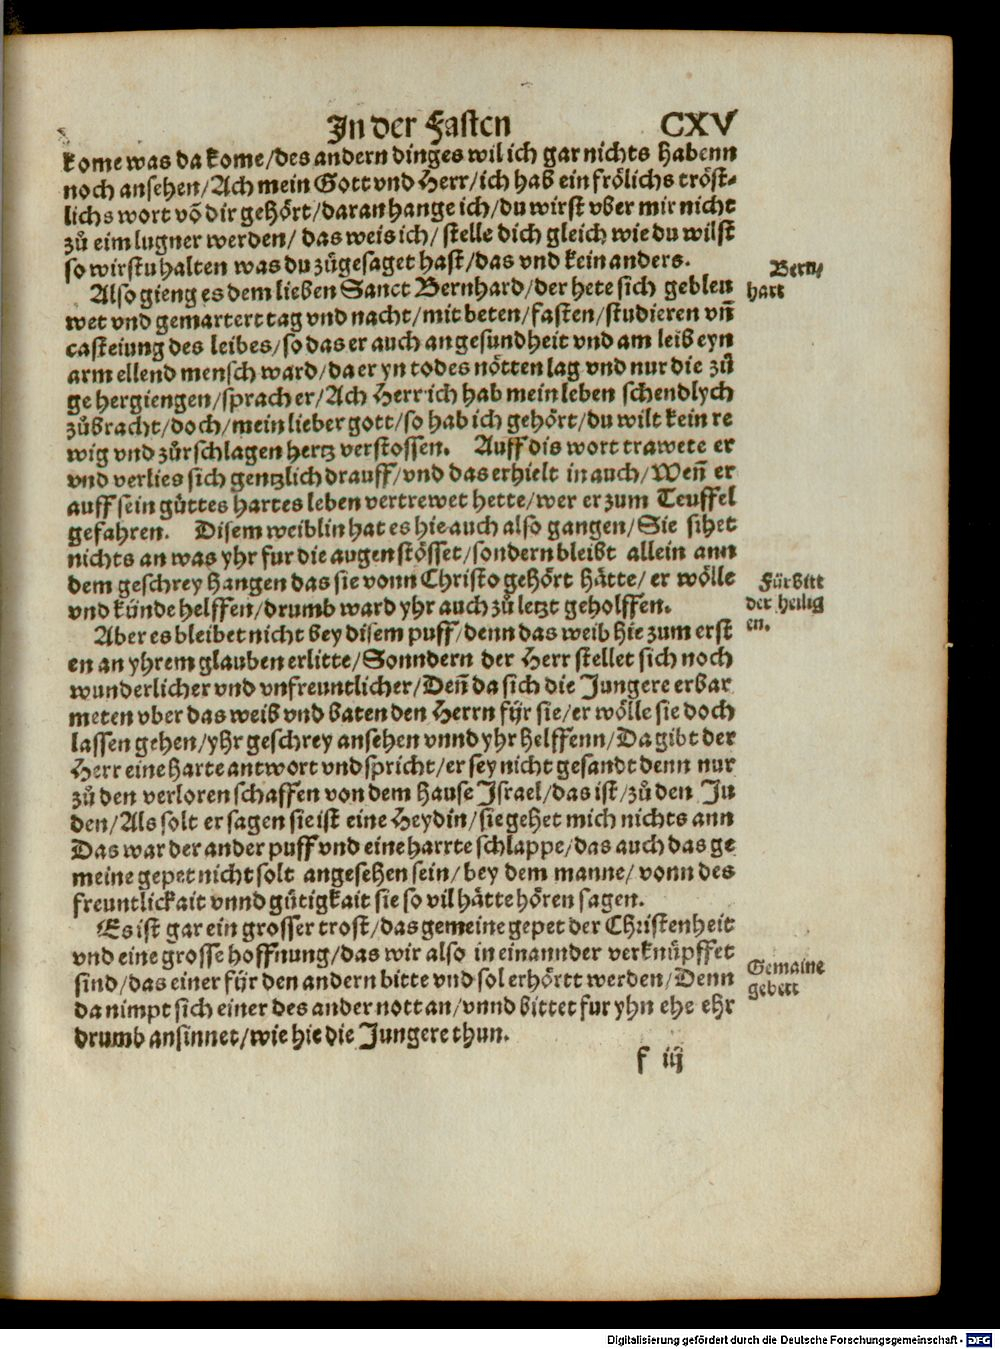 In der Fasten CXV
kome was da kome/des andern dinges wil ich gar nichts habenn
noch ansehen/Ach mein Gott vnd Herr/ich hab ein frölichs tröst-
lichs wort võ dir gehört/daran hange ich/du wirst vber mir nicht
zů eim lugner werden/ das weis ich/ stelle dich gleich wie du wilst
so wirstu halten was du zůgesaget hast/das vnd kein anders.
Also gieng es dem lieben Sanct Bernhard/der hete sich gebleu
wet vnd gemartert tag vnd nacht/mit beten/fasten/studieren vñ
casteiung des leibes/so das er auch an gesundheit vnd am leib eyn
arm ellend mensch ward/da er yn todes nötten lag vnd nur die zů
ge hergiengen/sprach er/Ach Herr ich hab mein leben schendlych
zůbracht/doch/mein lieber gott/so hab ich gehört/du wilt kein re
wig vnd zůrschlagen hertz verstossen. Auff dis wort trawete er
vnd verlies sich gentzlich drauff/vnd das erhielt in auch/Weñ er
auff sein gůttes hartes leben vertrewet hette/wer er zum Teuffel
gefahren. Disem weiblin hat es hie auch also gangen/Sie sihet
nichts an was yhr fur die augen stösset/sondern bleibt allein ann
dem geschrey hangen das sie vonn Christo gehört hätte/ er wölle
vnd künde helffen/drumb ward yhr auch zů letzt geholffen.
Aber es bleibet nicht bey disem puff/denn das weib hie zum erst
en an yhrem glauben erlitte/Sonndern der Herr stellet sich noch
wunderlicher vnd vnfreuntlicher/Deñ da sich die Jungere erbar
meten vber das weib vnd baten den Herrn fÿr sie/er wölle sie doch
lassen gehen/yhr geschrey ansehen vnnd yhr helffenn/Da gibt der
Herr eine harte antwort vnd spricht/er sey nicht gesandt denn nur
zů den verloren schaffen von dem hause Israel/das ist/zů den Ju
den/Als solt er sagen sie ist eine Heydin/sie gehet mich nichts ann
Das war der ander puff vnd eine harrte schlappe/das auch das ge
meine gepet nicht solt angesehen sein/bey dem manne/ vonn des
freuntlickait vnnd gütigkait sie so vil hätte hören sagen.
Es ist gar ein grosser trost/das gemeine gepet der Christenheit
vnd eine grosse hoffnung/das wir also in einannder verknüpffet
sind/das einer fÿr den andern bitte vnd sol erhörtt werden/Denn
da nimpt sich einer des ander nott an/vnnd bittet fur yhn ehe ehr
drumb ansinnet/wie hie die Jungere thun.
f iij
Bern/
hart
Fürbitt
der heilig
en.
Gemaine
gebett
Digitalisierung gefördert durch die Deutsche Forschungsgemeinschaft - DFG